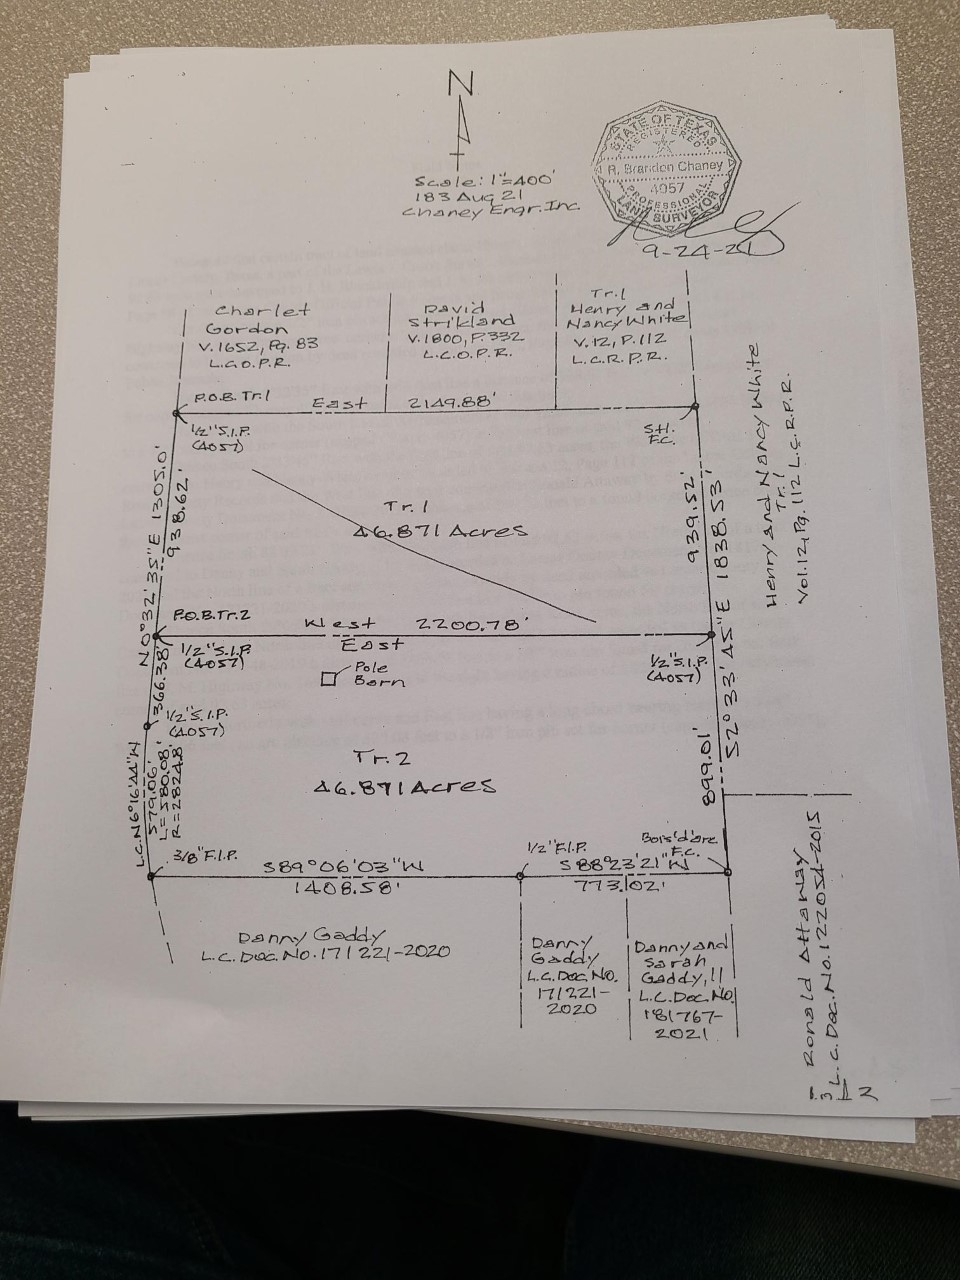 N
Scale: 1"=400'
183 Aug 21
Chaney Engr. Inc.
STATE OF TEXAS
REGISTERED
R. Brandon Chaney
4057
PROFESSIONAL
LAND SURVEYOR
9-24-21
Charlet
Gordon
V. 1652, Pg. 83
L.C.O.P.R.
David
Strikland
V. 1800, P. 332
L.C.O.P.R.
Tr. 1
Henry and
Nancy White
V. 12, P. 112
L.C.R.P.R.
Henry and Nancy White
Tr. 1
Vol. 12, Pg. 112 L.C.R.P.R.
P.O.B. Tr. 1
East 2149.88'
1/2" S.I.P.
(4057)
S.H.
F.C.
N 0° 32' 35" E 1305.0'
938.62'
Tr. 1
46.871 Acres
939.52'
S 2° 33' 45" E 1838.53'
P.O.B. Tr. 2
West 2200.78'
East
1/2" S.I.P.
(4057)
1/2" S.I.P.
(4057)
Pole
Barn
366.38'
1/2" S.I.P.
(4057)
Tr. 2
46.871 Acres
L.C. N 6° 16' 44" W
579.06'
L = 580.08'
R = 2824.8'
899.01'
3/8" F.I.P.
S 89° 06' 03" W
1408.58'
1/2" F.I.P.
S 88° 23' 21" W
773.02'
Bois'd'arc
F.C.
Danny Gaddy
L.C. Doc. No. 171221-2020
Danny
Gaddy
L.C. Doc. No.
171221-
2020
Danny and
Sarah
Gaddy, II
L.C. Doc. No.
181767-
2021
Ronald Attaway
L.C. Doc. No. 122054-2015